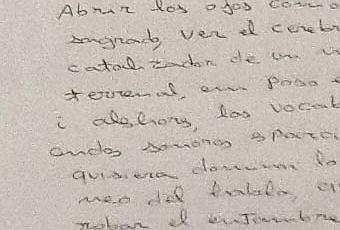 Abrir los ojos como
sagrado, ver el cereb
catalizador de un
terrenal, un poso
i alshors, las vocab
ondas sonoras esparci
quisiera dominar lo
meo del habla,
robar el enjambre